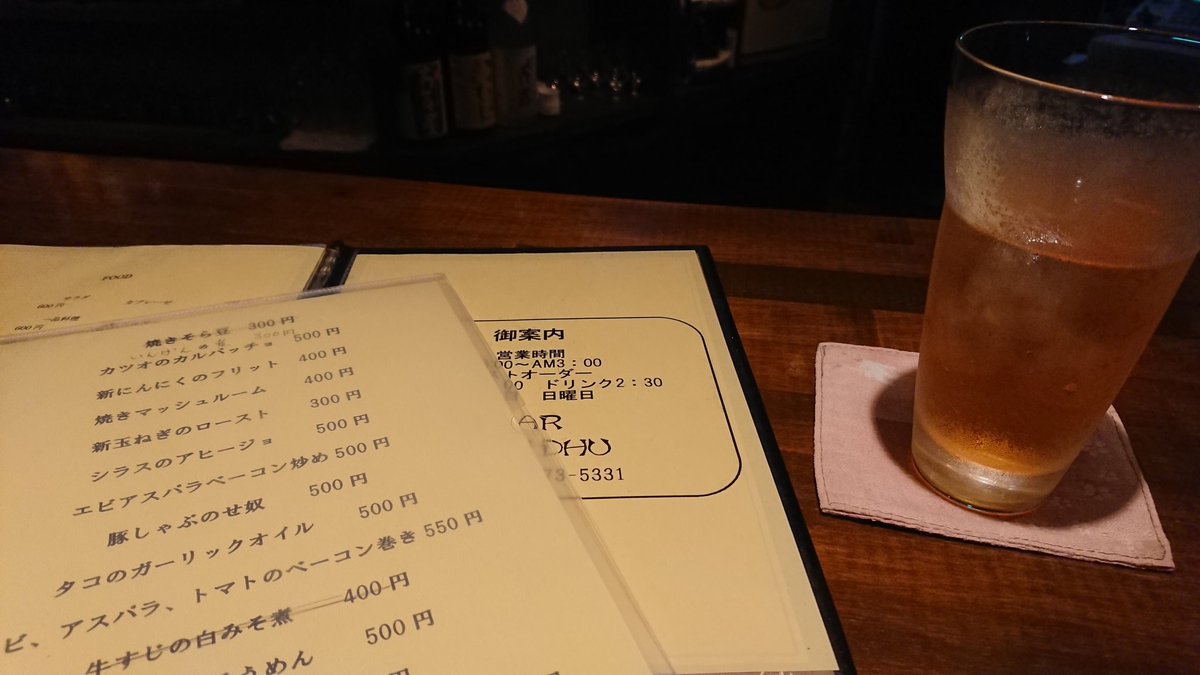 FOOD
サラダ
600円
カプレーゼ
一品料理
600円
焼きそら豆 300円
いんげんの 300円
カツオのカルパッチョ 500円
新にんにくのフリット 400円
焼きマッシュルーム 400円
新玉ねぎのロースト 300円
シラスのアヒージョ 500円
エビアスパラベーコン炒め 500円
豚しゃぶのせ奴 500円
タコのガーリックオイル 500円
ビ、アスパラ、トマトのベーコン巻き 550円
牛すじの白みそ煮 400円
うめん 500円
円
御案内
営業時間
00〜AM3：00
トオーダー
00 ドリンク2：30
日曜日
AR
DHU
73-5331